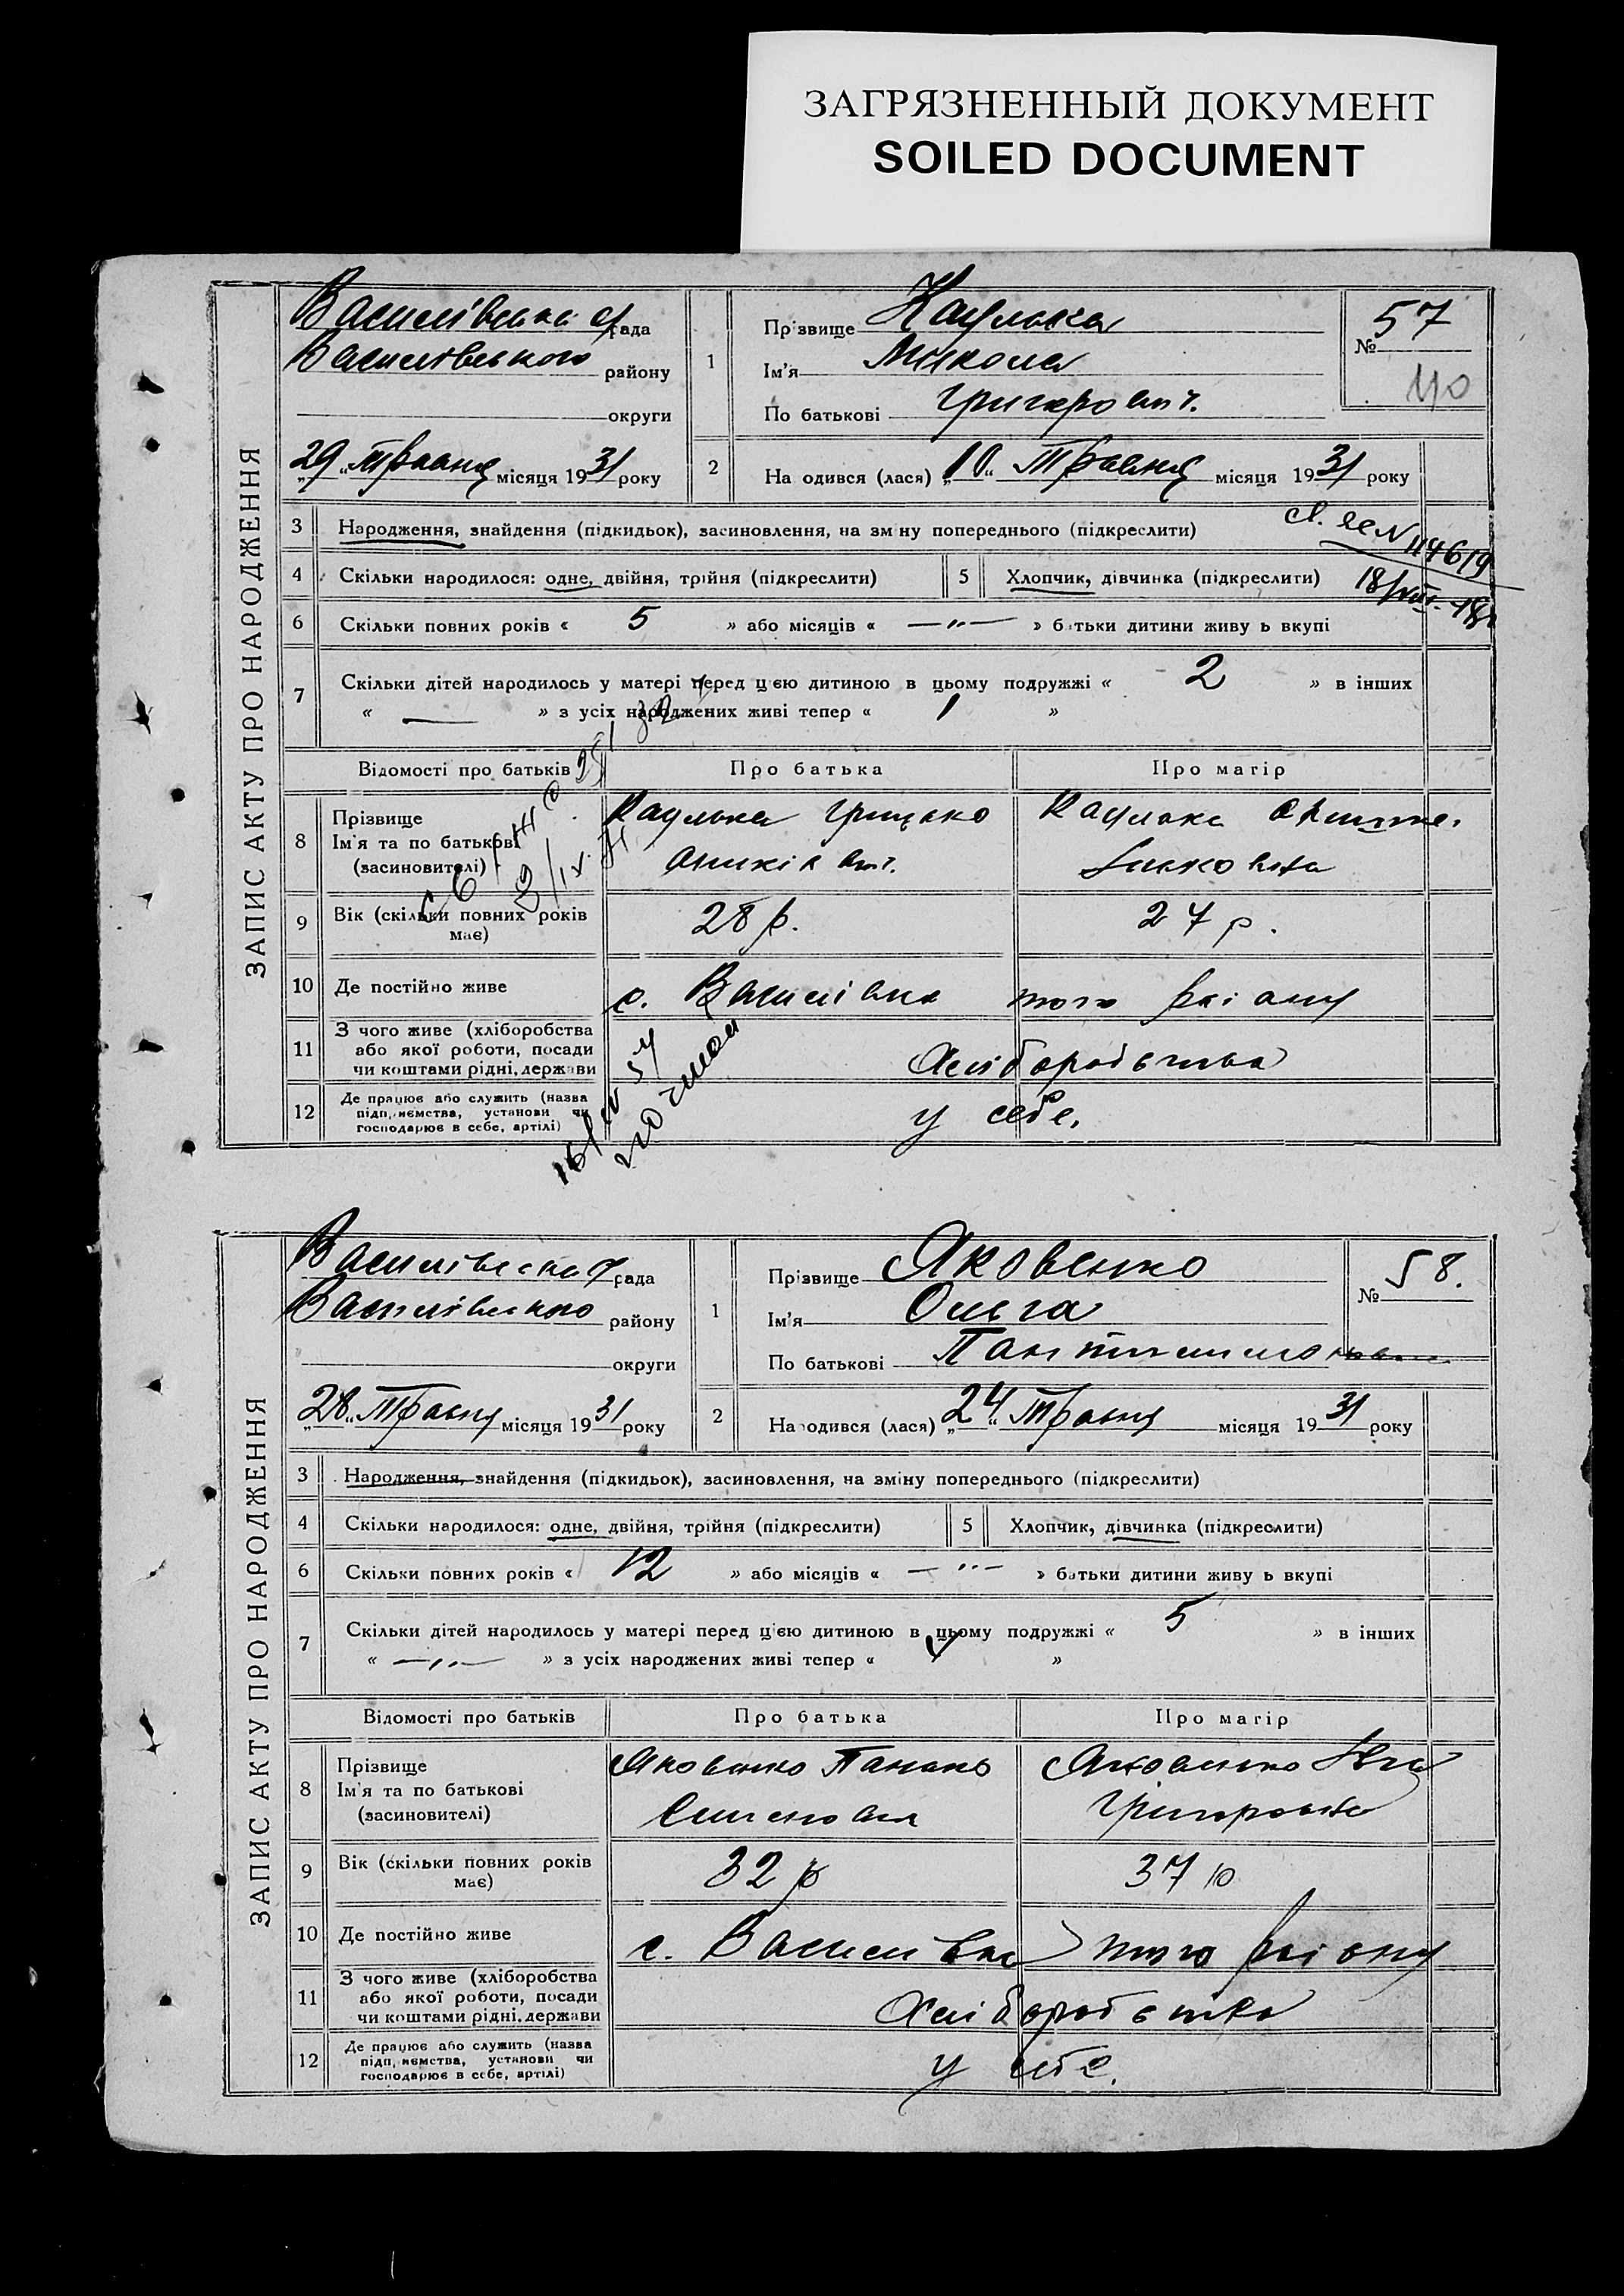 ЗАГРЯЗНЕННЫЙ ДОКУМЕНТ
SOILED DOCUMENT
ЗАПИС АКТУ ПРО НАРОДЖЕННЯ
Василівська с/рада
Василівського району
округи
29 травня місяця 1931 року
1
Прізвище
Ім'я Микола
По батькові Григорович.
№ 57
110
2
Народився (лася) „10“ Травня місяця 1931 року
3 Народження, знайдення (підкидьок), засиновлення, на зміну попереднього (підкреслити)
4 Скільки народилося: одне, двійня, трійня (підкреслити)
5 Хлопчик, дівчинка (підкреслити)
6 Скільки повних років « 5 » або місяців « —"— » батьки дитини живуть вкупі
7 Скільки дітей народилось у матері перед цією дитиною в цьому подружжі « 2 » в інших
« — » з усіх народжених живі тепер « 1 »
Відомості про батьків
Про батька
Про матір
8 Прізвище
Ім'я та по батькові
(засновителі)
Грицько
9 Вік (скільки повних років
має)
28 р.
27 р.
10 Де постійно живе
с. Василівка того району
11 З чого живе (хліборобства
або якої роботи, посади
чи коштами рідні, держави
Хліборобства
12 Де працює або служить (назва
підприємства, установи чи
господарює в себе, артілі)
у себе.
ЗАПИС АКТУ ПРО НАРОДЖЕННЯ
Василівська с/рада
Василівського району
округи
„28“ Травня місяця 1931 року
1
Прізвище Яковенко
Ім'я Ольга
По батькові
№ 58.
2
Народився (лася) „24“ Травня місяця 1931 року
3 Народження, знайдення (підкидьок), засиновлення, на зміну попереднього (підкреслити)
4 Скільки народилося: одне, двійня, трійня (підкреслити)
5 Хлопчик, дівчинка (підкреслити)
6 Скільки повних років « 12 » або місяців « —"— » батьки дитини живуть вкупі
7 Скільки дітей народилось у матері перед цією дитиною в цьому подружжі « 5 » в інших
« —"— » з усіх народжених живі тепер « 4 »
Відомості про батьків
Про батька
Про матір
8 Прізвище
Ім'я та по батькові
(засиновителі)
Яковенко
Яковенко
Григоровна
9 Вік (скільки повних років
має)
32 р
37 р
10 Де постійно живе
с. Василівка того району
11 З чого живе (хліборобства
або якої роботи, посади
чи коштами рідні, держави
Хліборобства
12 Де працює або служить (назва
підприємства, установи чи
господарює в себе, артілі)
у себе.